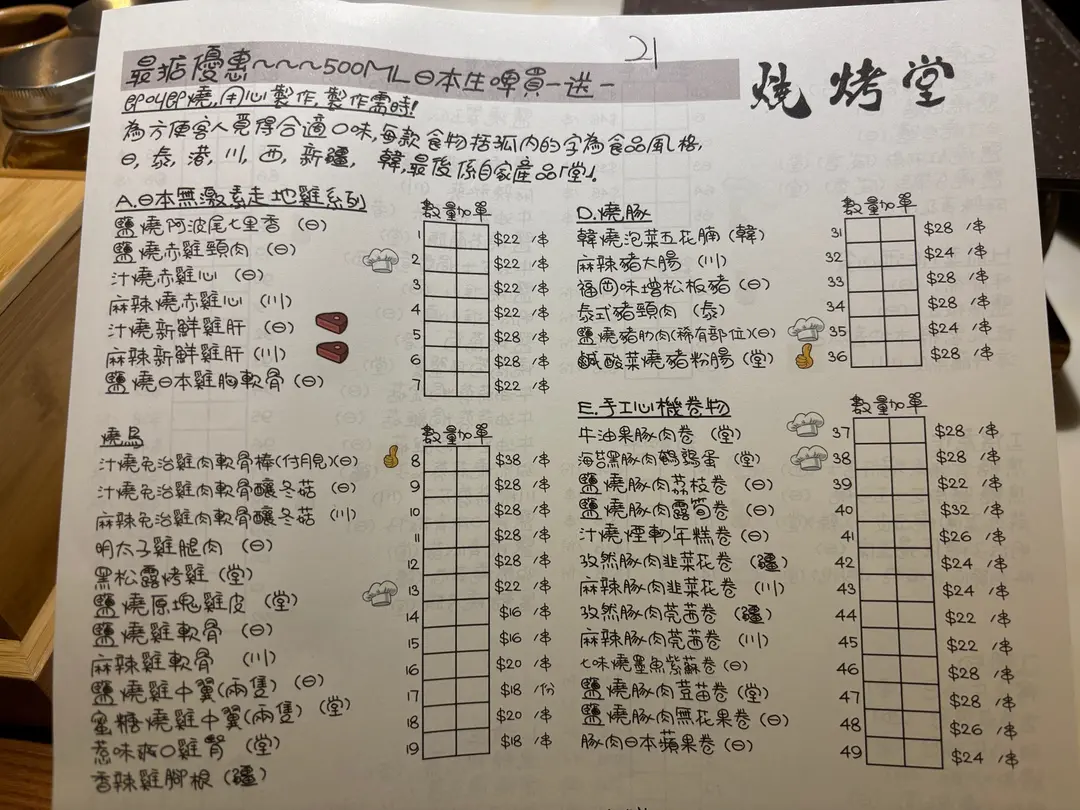 21
最掂優惠~~~500ML日本生啤買一送一
燒烤堂
即叫即燒,用心製作,製作需時!
為方便客人覓得合適口味,每款食物括孤內的字為食品風格,
日, 泰, 港, 川, 西, 新疆, 韓,最後係自家產品「堂」.
A.日本無激素走地雞系列 數量加單
鹽燒阿波尾七里香 (日) 1 $22 /串
鹽燒赤雞頸肉 (日) 2 $22 /串
汁燒赤雞心 (日) 3 $22 /串
麻辣燒赤雞心 (川) 4 $22 /串
汁燒新鮮雞肝 (日) 5 $28 /串
麻辣新鮮雞肝 (川) 6 $28 /串
鹽燒日本雞胸軟骨 (日) 7 $22 /串
燒鳥 數量加單
汁燒免治雞肉軟骨棒(付月見)(日) 8 $38 /串
汁燒免治雞肉軟骨釀冬菇 (日) 9 $28 /串
麻辣免治雞肉軟骨釀冬菇 (川) 10 $28 /串
明太子雞腿肉 (日) 11 $28 /串
黑松露烤雞 (堂) 12 $28 /串
鹽燒原塊雞皮 (堂) 13 $22 /串
鹽燒雞軟骨 (日) 14 $16 /串
麻辣雞軟骨 (川) 15 $16 /串
鹽燒雞中翼(兩隻) (日) 16 $20 /串
蜜糖燒雞中翼(兩隻) (堂) 17 $18 /份
惹味爽口雞腎 (堂) 18 $20 /串
香辣雞腳根 (疆) 19 $18 /串
D.燒豚 數量加單
韓燒泡菜五花腩 (韓) 31 $28 /串
麻辣豬大腸 (川) 32 $24 /串
福岡味增松板豬 (日) 33 $28 /串
泰式豬頸肉 (泰) 34 $28 /串
鹽燒豬肋肉(稀有部位)(日) 35 $24 /串
鹹酸菜燒豬粉腸 (堂) 36 $28 /串
E.手工心機卷物 數量加單
牛油果豚肉卷 (堂) 37 $28 /串
海苔黑豚肉鵪鶉蛋 (堂) 38 $28 /串
鹽燒豚肉荔枝卷 (日) 39 $22 /串
鹽燒豚肉露筍卷 (日) 40 $32 /串
汁燒煙韌年糕卷 (日) 41 $26 /串
孜然豚肉韭菜花卷 (疆) 42 $24 /串
麻辣豚肉韭菜花卷 (川) 43 $24 /串
孜然豚肉莞茜卷 (疆) 44 $22 /串
麻辣豚肉莞茜卷 (川) 45 $22 /串
七味燒墨魚紫蘇卷 (日) 46 $28 /串
鹽燒豚肉荳苗卷 (堂) 47 $28 /串
鹽燒豚肉無花果卷 (日) 48 $26 /串
豚肉日本蘋果卷 (日) 49 $24 /串